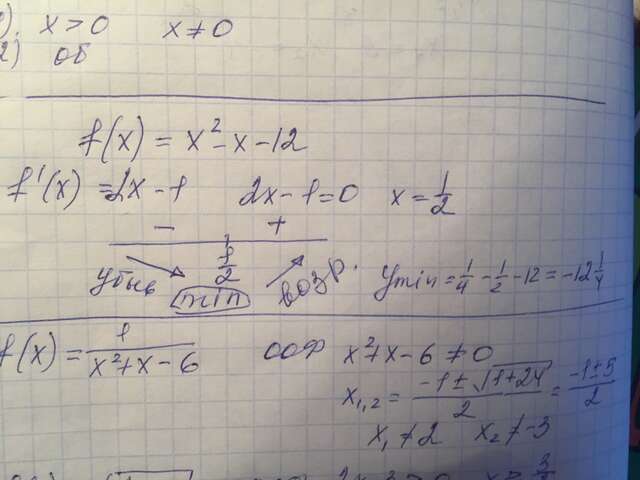 x > 0   x ≠ 0
f(x) = x² - x - 12
f'(x) = 2x - 1   2x - 1 = 0   x = 1/2
-   +
1/2
min   возр.   y min = 1/4 - 1/2 - 12 = -12 1/4
f(x) = 1/(x² + x - 6)   ООФ   x² + x - 6 ≠ 0
x₁,₂ = (-1 ± √(1 + 24))/2 = (-1 ± 5)/2
x₁ ≠ 2   x₂ ≠ -3